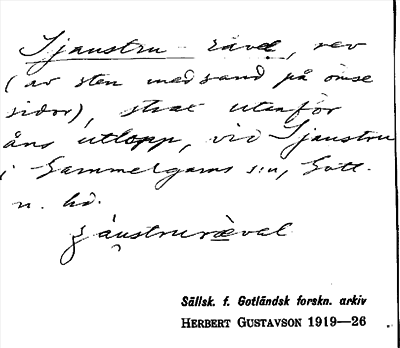 Sjaustru - rävel, rev
(av sten med sand på ömse
sidor), strax utanför
åns utlopp, vid Sjaustru
i Gammelgarns s:n, Gotl.
n. hd.
šaustrurævəl
Sällsk. f. Gotländsk forskn. arkiv
HERBERT GUSTAVSON 1919—26